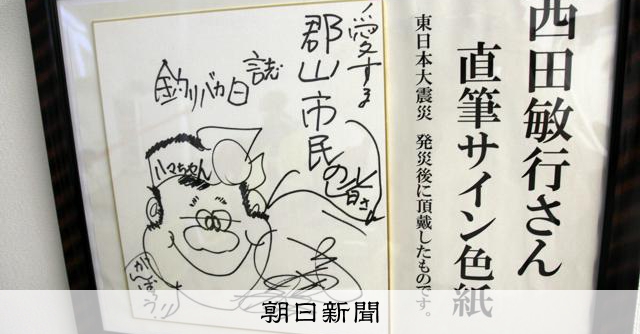 西田敏行さん
直筆サイン色紙
東日本大震災 発災後に頂戴したものです。
愛する
郡山市民
の皆さん
釣りバカ日誌
ハマちゃん
がんばろう!!
朝日新聞